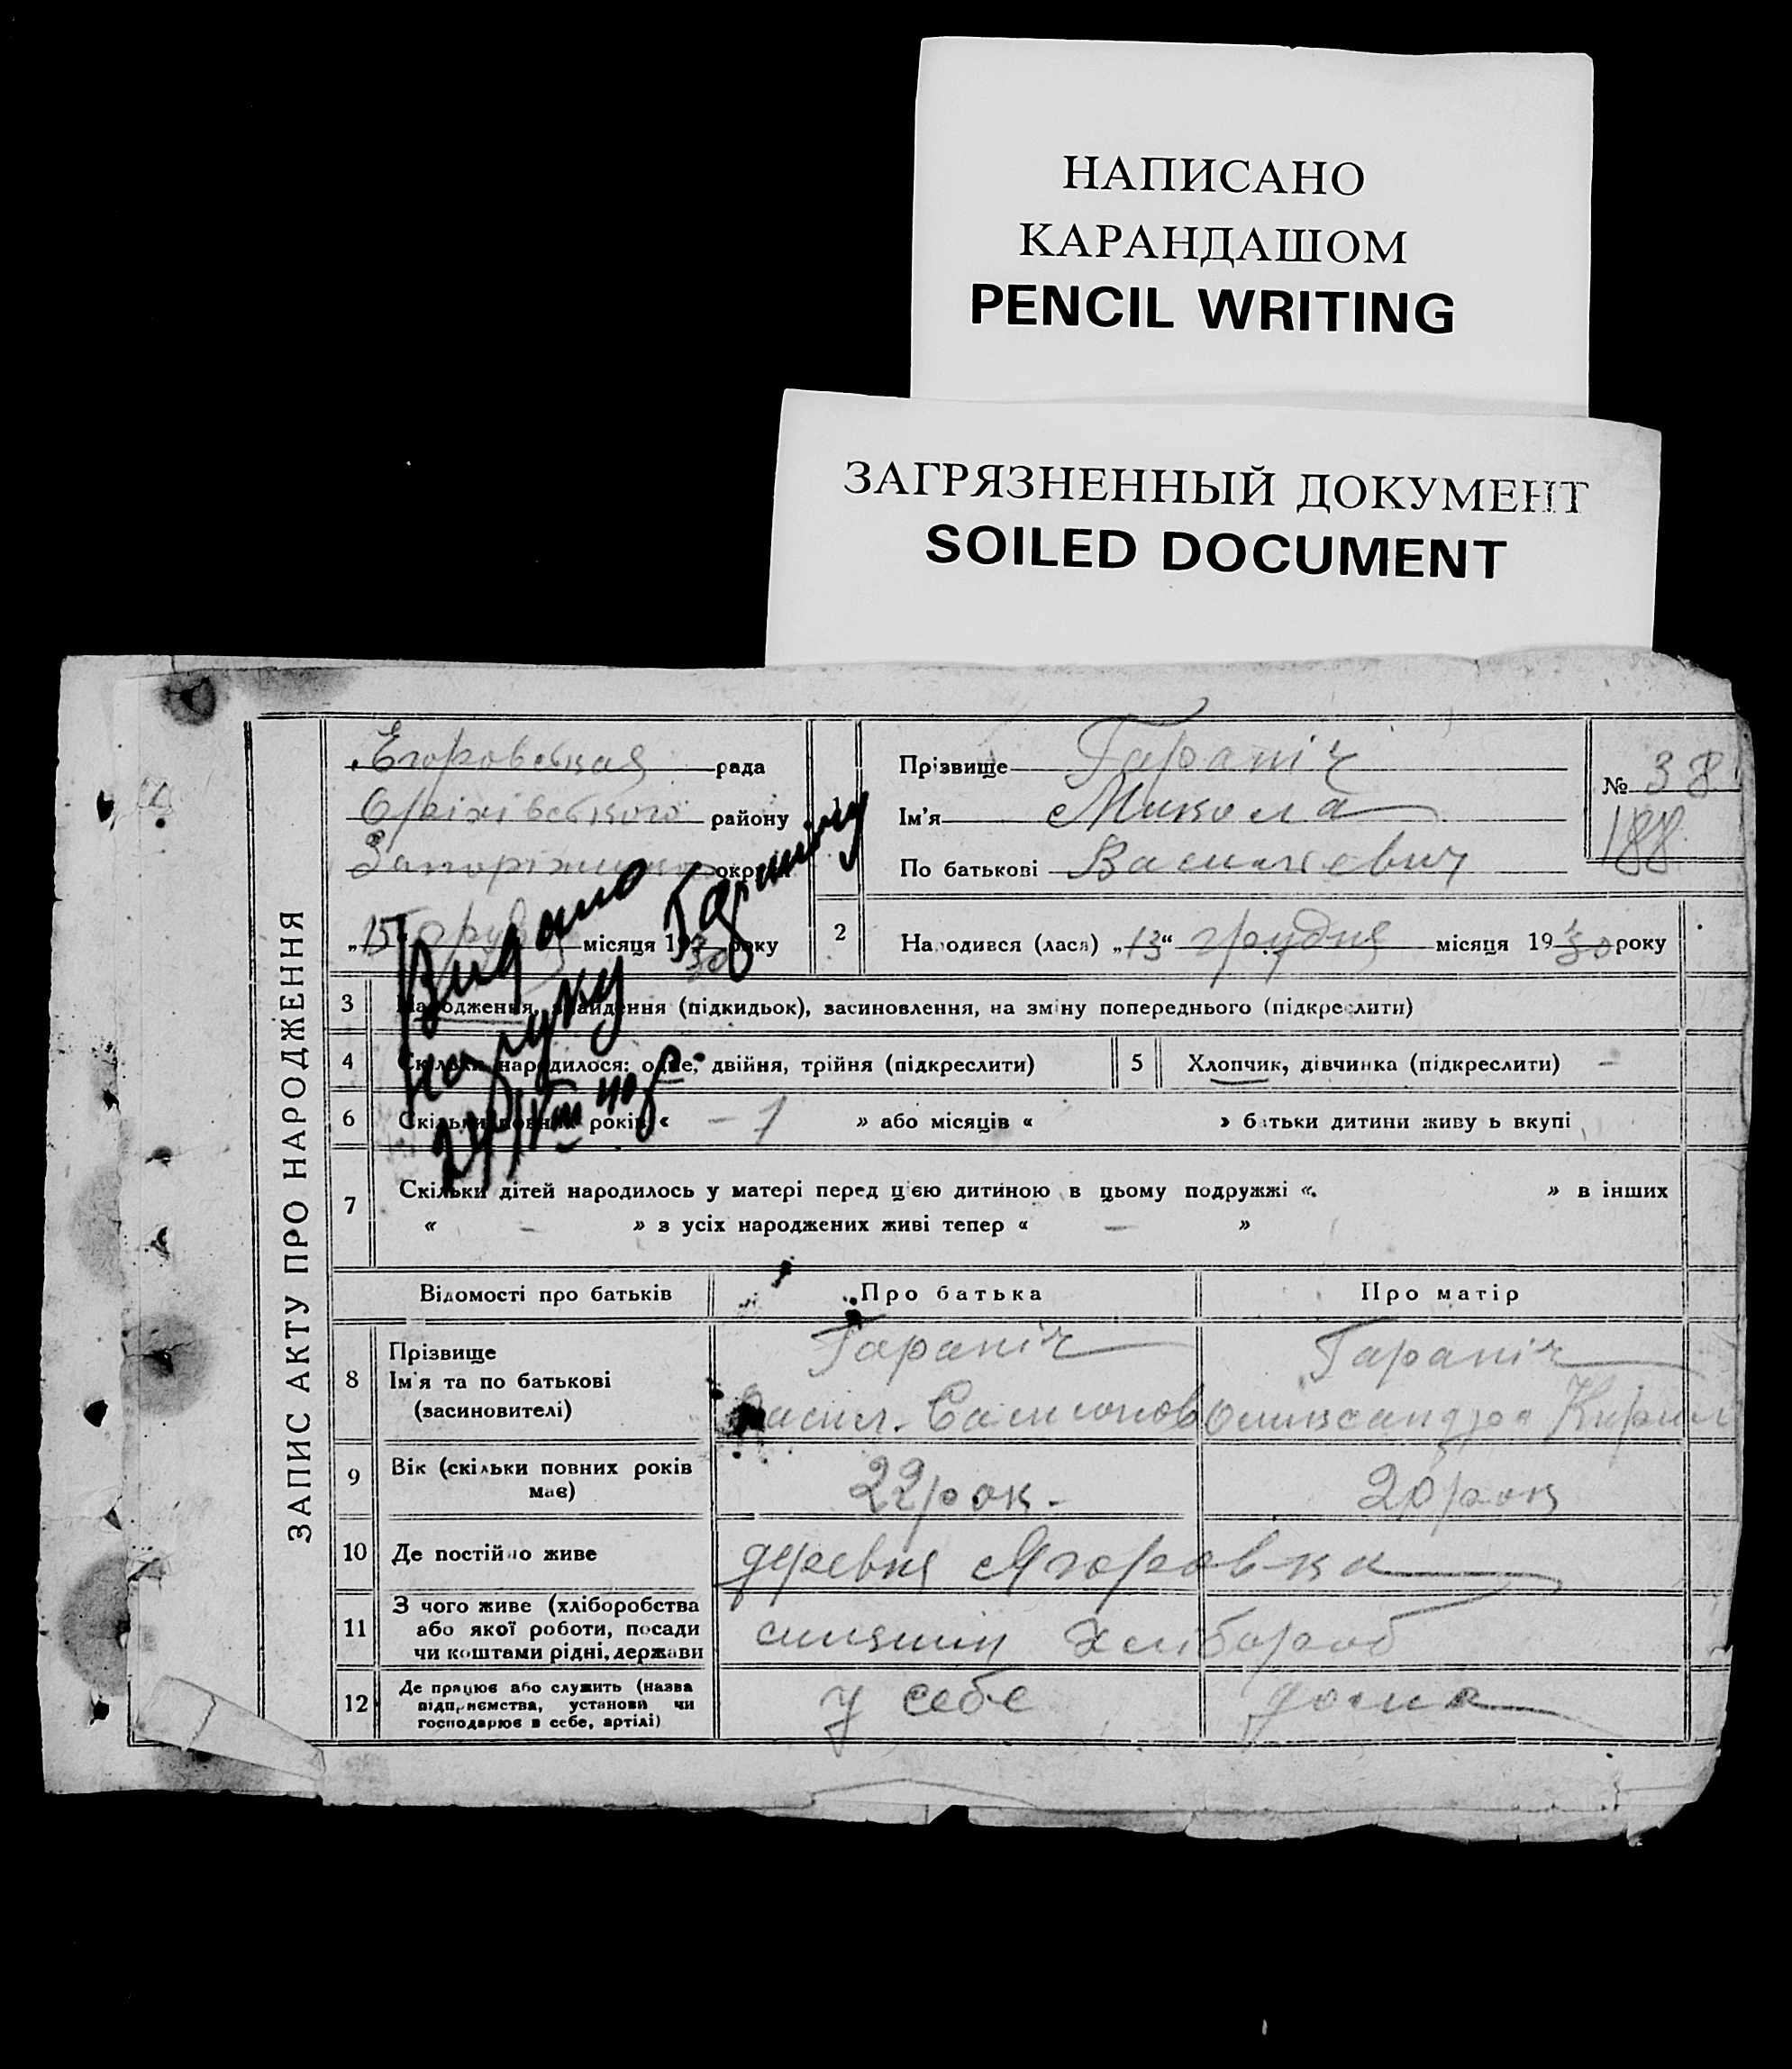 НАПИСАНО
КАРАНДАШОМ
PENCIL WRITING
ЗАГРЯЗНЕННЫЙ ДОКУМЕНТ
SOILED DOCUMENT
ЗАПИС АКТУ ПРО НАРОДЖЕННЯ
Егоровская рада
Оріхівського району
Запоріжжя округи
„15“ Грудня місяця 1930 року
Видано
на руку
Прізвище Гарапіч
Ім'я Микола
По батькові Васильевич
№ 38
188
2 Народився (лася) „13“ грудня місяця 1930 року
3 Народження, знайдення (підкидьок), засиновлення, на зміну попереднього (підкреслити)
4 Скільки народилося: одне, двійня, трійня (підкреслити)
5 Хлопчик, дівчинка (підкреслити) -
6 Скільки повних років « - 1 » або місяців « » батьки дитини живуть вкупі
7 Скільки дітей народилось у матері перед цією дитиною в цьому подружжі « » в інших
« - » з усіх народжених живі тепер « - »
Відомості про батьків Про батька Про матір
8 Прізвище
Ім'я та по батькові
(засиновителі)
Гарапіч
Васил. Самсонов
Гарапіч
Олександра Кирил
9 Вік (скільки повних років
має)
22 рок. 20 рок
10 Де постійно живе деревня Ягоровка
11 З чого живе (хліборобства
або якої роботи, посади
чи коштами рідні, держави
Хлибороб
12 Де працює або служить (назва
підприємства, установи чи
господарює в себе, артілі)
у себе дома